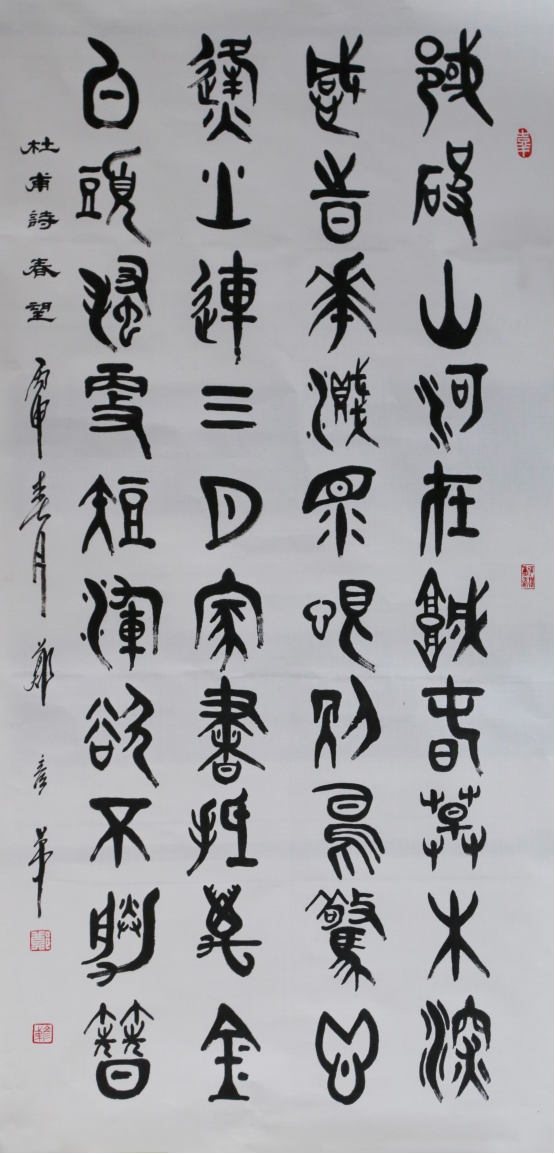 國破山河在城春草木深
感時花濺淚恨別鳥驚心
烽火連三月家書抵萬金
白頭搔更短渾欲不勝簪
杜甫詩春望 丙申春月 鄭彦華